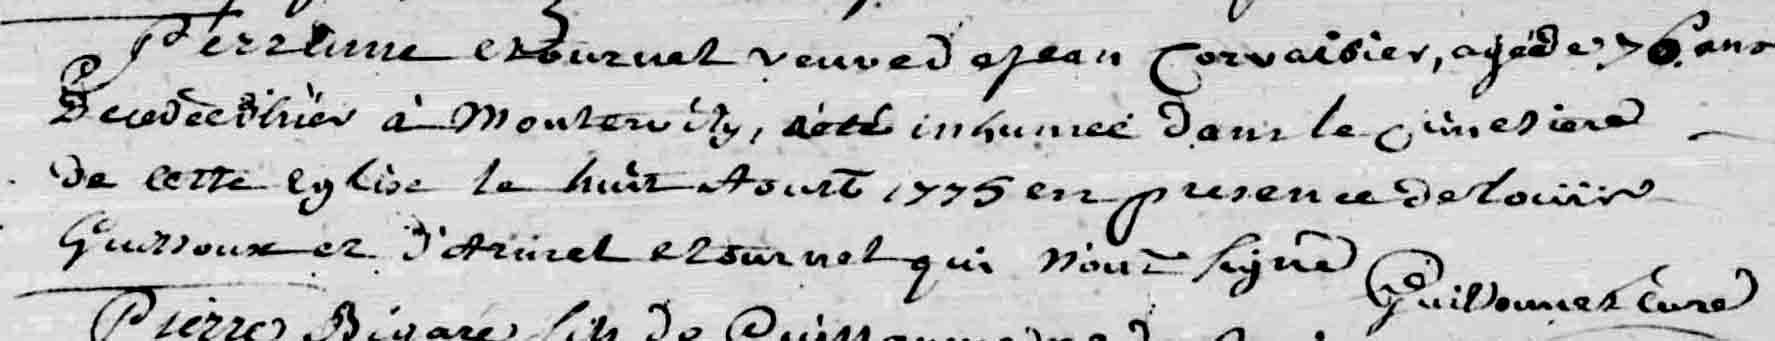 Perrinne etournel veuve de jean Corvaisier, agée de 76 ans
Decedée d'hier à Montervily, a eté inhumée dans le Cimetiere
de cette Eglise le huit Aoust 1775 en presence de Louis
Guilloux et d'Armel etournel qui n'ont signé
Guillounet Curé
Pierre Bigaré fils de Guillaume